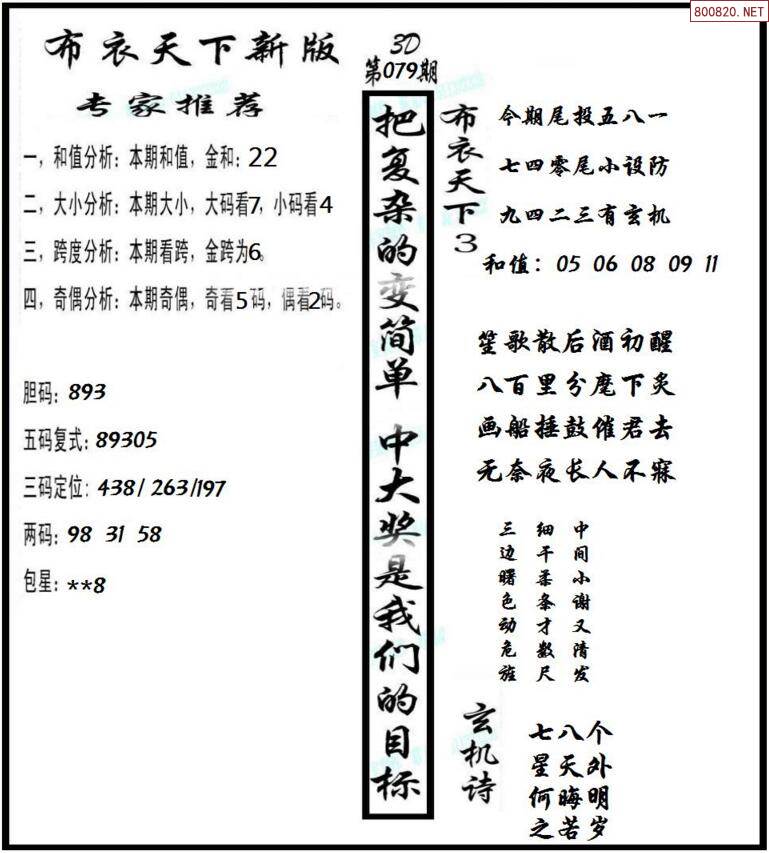 800820.NET
布衣天下新版
专家推荐
一，和值分析：本期和值，金和：22
二，大小分析：本期大小，大码看7，小码看4
三，跨度分析：本期看跨，金跨为6。
四，奇偶分析：本期奇偶，奇看5码，偶看2码。
胆码：893
五码复式：89305
三码定位：438/ 263/197
两码：98 31 58
包星：**8
3D
第079期
把复杂的变简单 中大奖是我们的目标
布衣天下3
今期尾投五八一
七四零尾小设防
九四二三有玄机
和值：05 06 08 09 11
笙歌散后酒初醒
八百里分麾下炙
画船捶鼓催君去
无奈夜长人不寐
三边曙色动危旌
细干柔条才数尺
中间小谢又清发
玄机诗
七八个
星天外
何晦明
之若岁